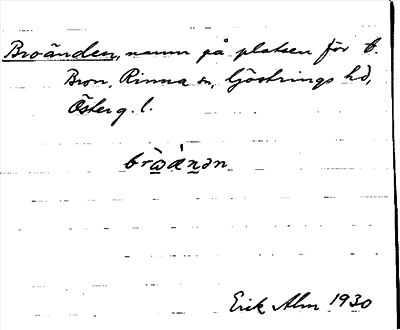 Broänden, namn på platsen för t.
Bron, Rinna sn, Göstrings hd,
Österg. l.
Erik Alm 1930